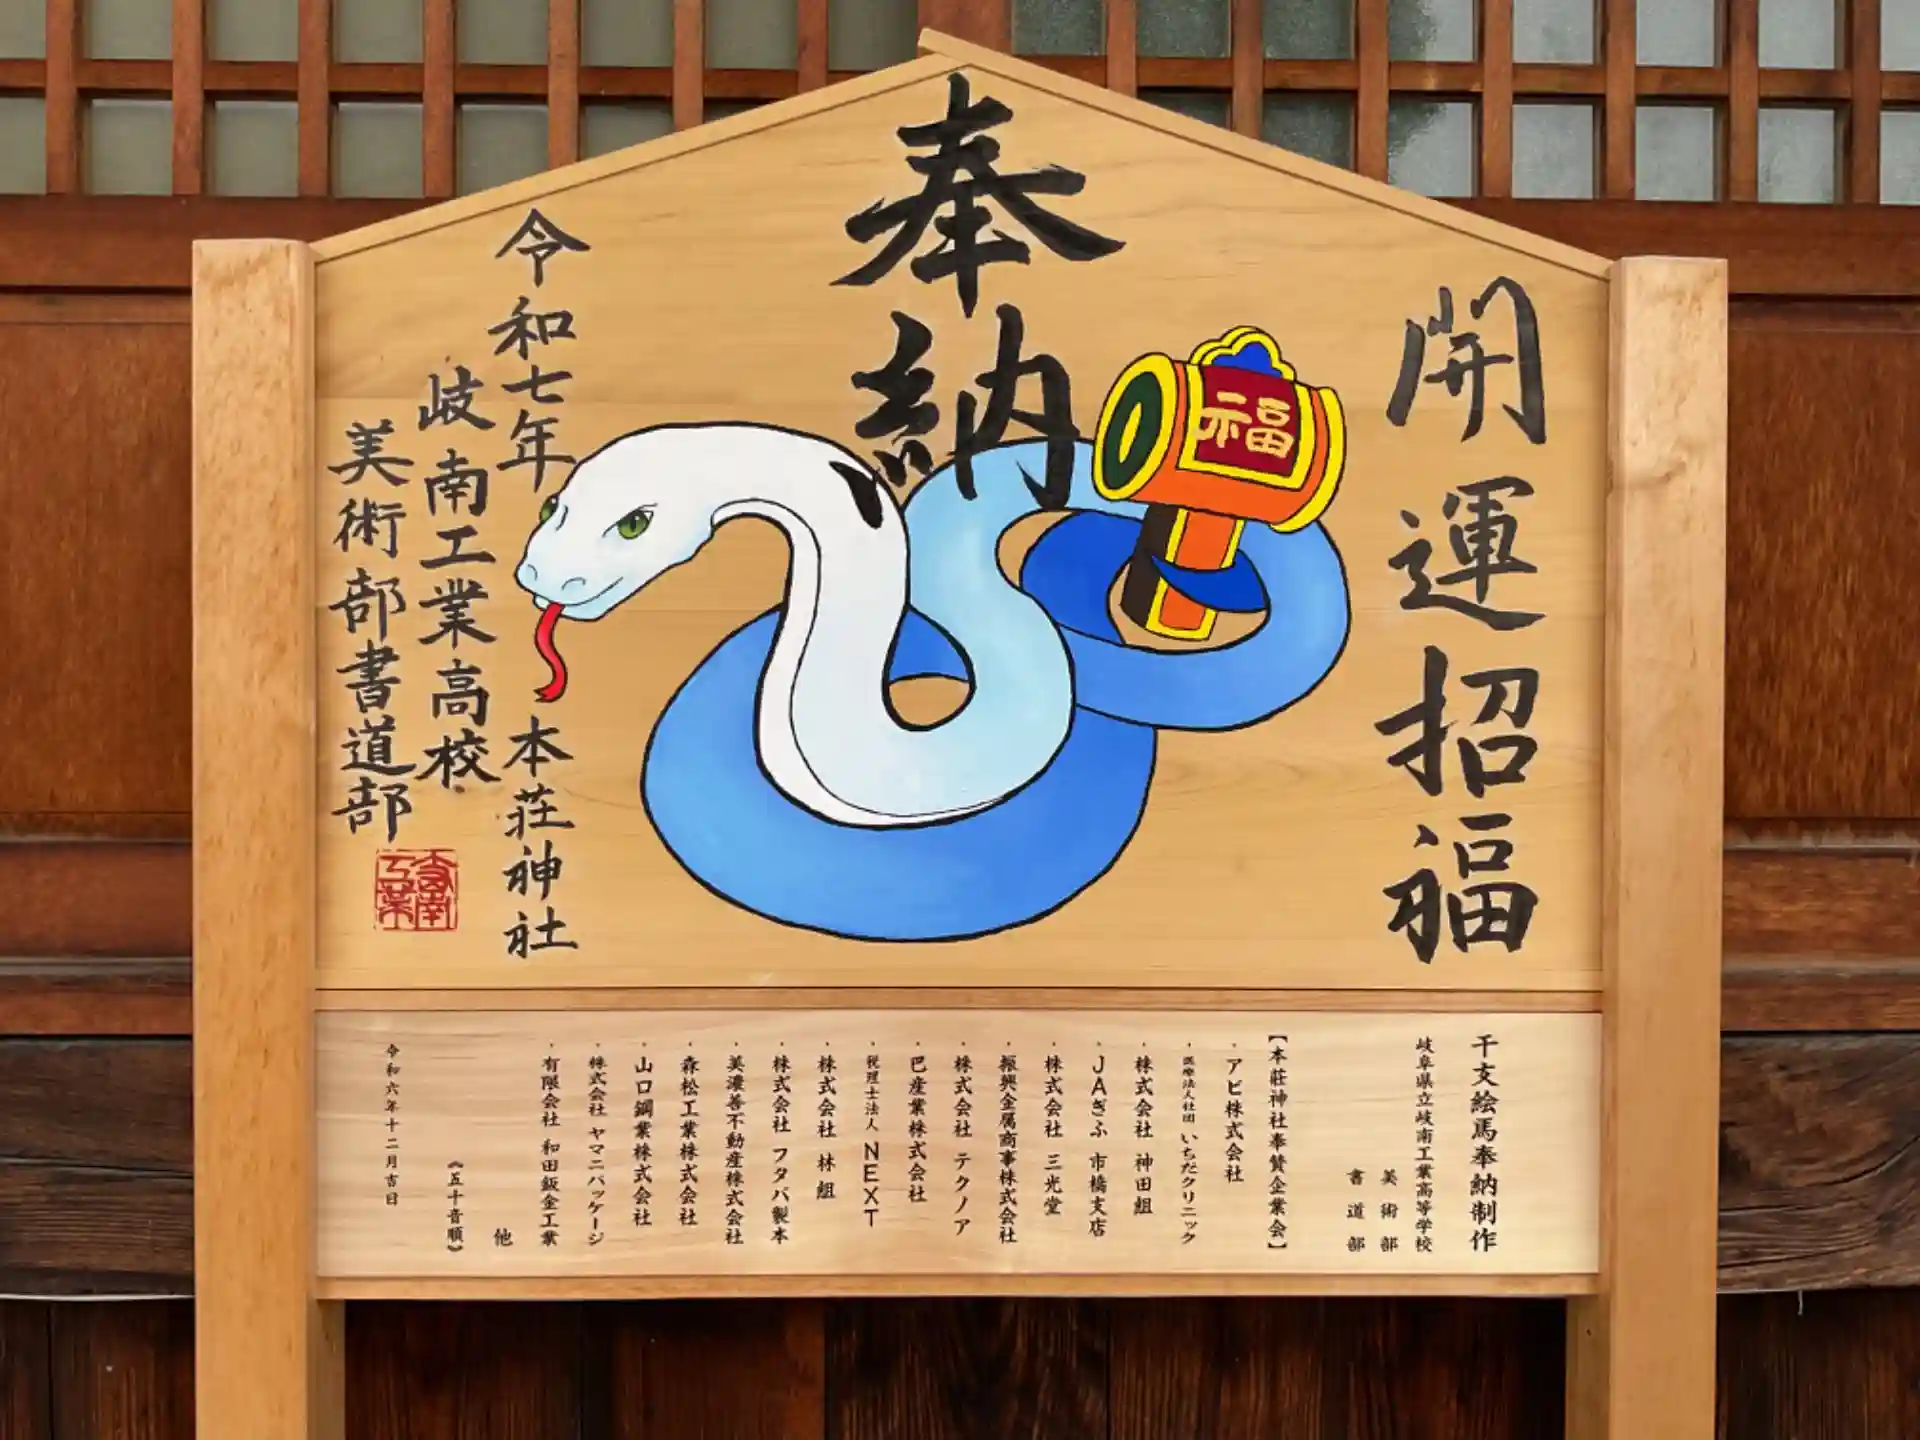 奉納
開運招福
福
令和七年
本荘神社
岐南工業高校
美術部書道部
干支絵馬奉納制作
岐阜県立岐南工業高等学校
美術部
書道部
【本荘神社奉賛企業会】
・アピ株式会社
・医療法人社団 いちだクリニック
・株式会社 神田組
・JAぎふ 市橋支店
・株式会社 三光堂
・振興金属商事株式会社
・株式会社 テクノア
・巴産業株式会社
・税理士法人 NEXT
・株式会社 林組
・株式会社 フタバ製本
・美濃善不動産株式会社
・森松工業株式会社
・山口鋼業株式会社
・株式会社 ヤマニパッケージ
・有限会社 和田鈑金工業
他
《五十音順》
令和六年十二月吉日